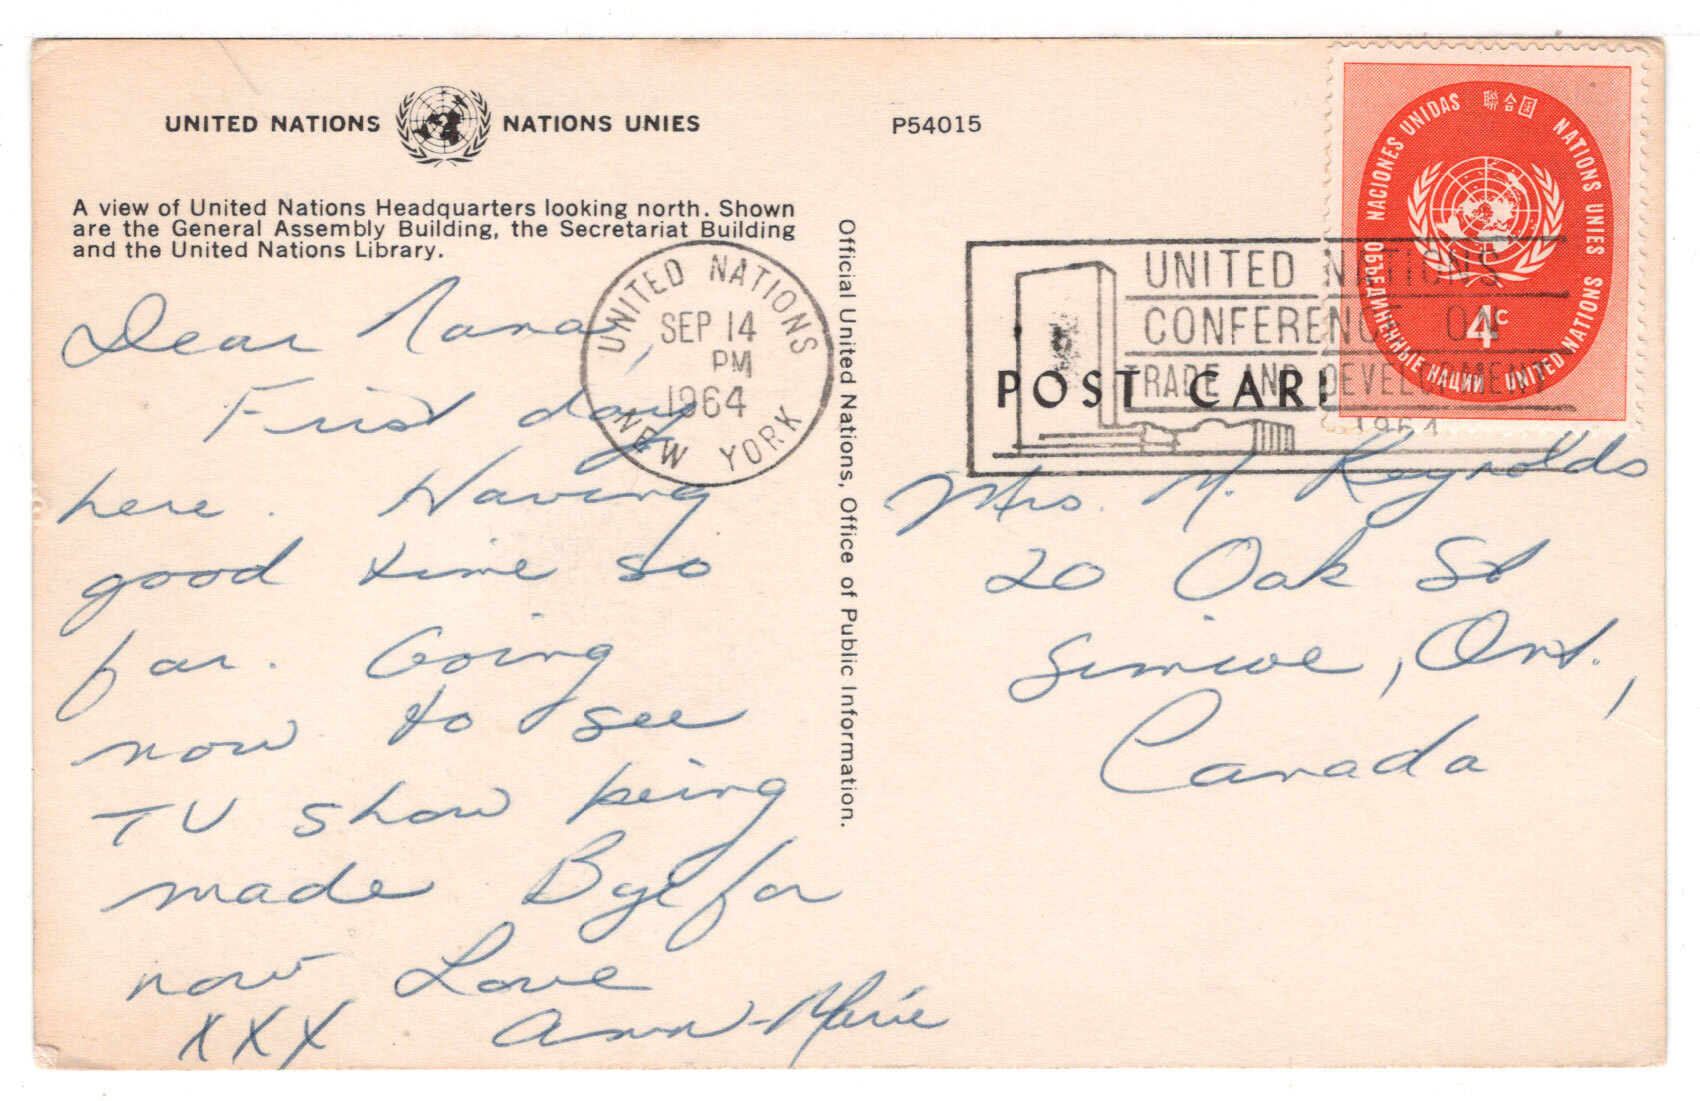 UNITED NATIONS NATIONS UNIES
P54015
A view of United Nations Headquarters looking north. Shown
are the General Assembly Building, the Secretariat Building
and the United Nations Library.
Dear Nana,
First day
here. Having
good time so
far. Going
now to see
TV show being
made Bye for
now Love
XXX Ann-Marie
UNITED NATIONS
SEP 14
PM
1964
NEW YORK
Official United Nations, Office of Public Information.
UNITED NATIONS
CONFERENCE ON
TRADE AND DEVELOPMENT
1964
POST CAR
NACIONES UNIDAS 聯合国 NATIONS UNIES
ОБЪЕДИНЕННЫЕ НАЦИИ UNITED NATIONS
4c
Mrs. M. Reynolds
20 Oak St
Simcoe, Ont.,
Canada